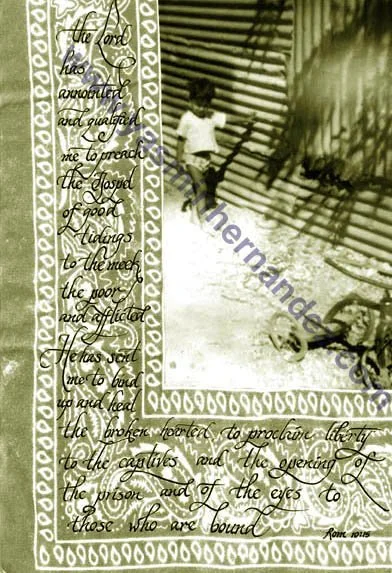 the Lord
has
annointed
and qualified
me to preach
the Gospel
of good
tidings
to the meek
the poor
and afflicted
He has sent
me to bind
up and heal
the broken hearted to proclaim liberty
to the captives and the opening of
the prison and of the eyes to
those who are bound
Rom 10:15
www.yasminhernandez.com